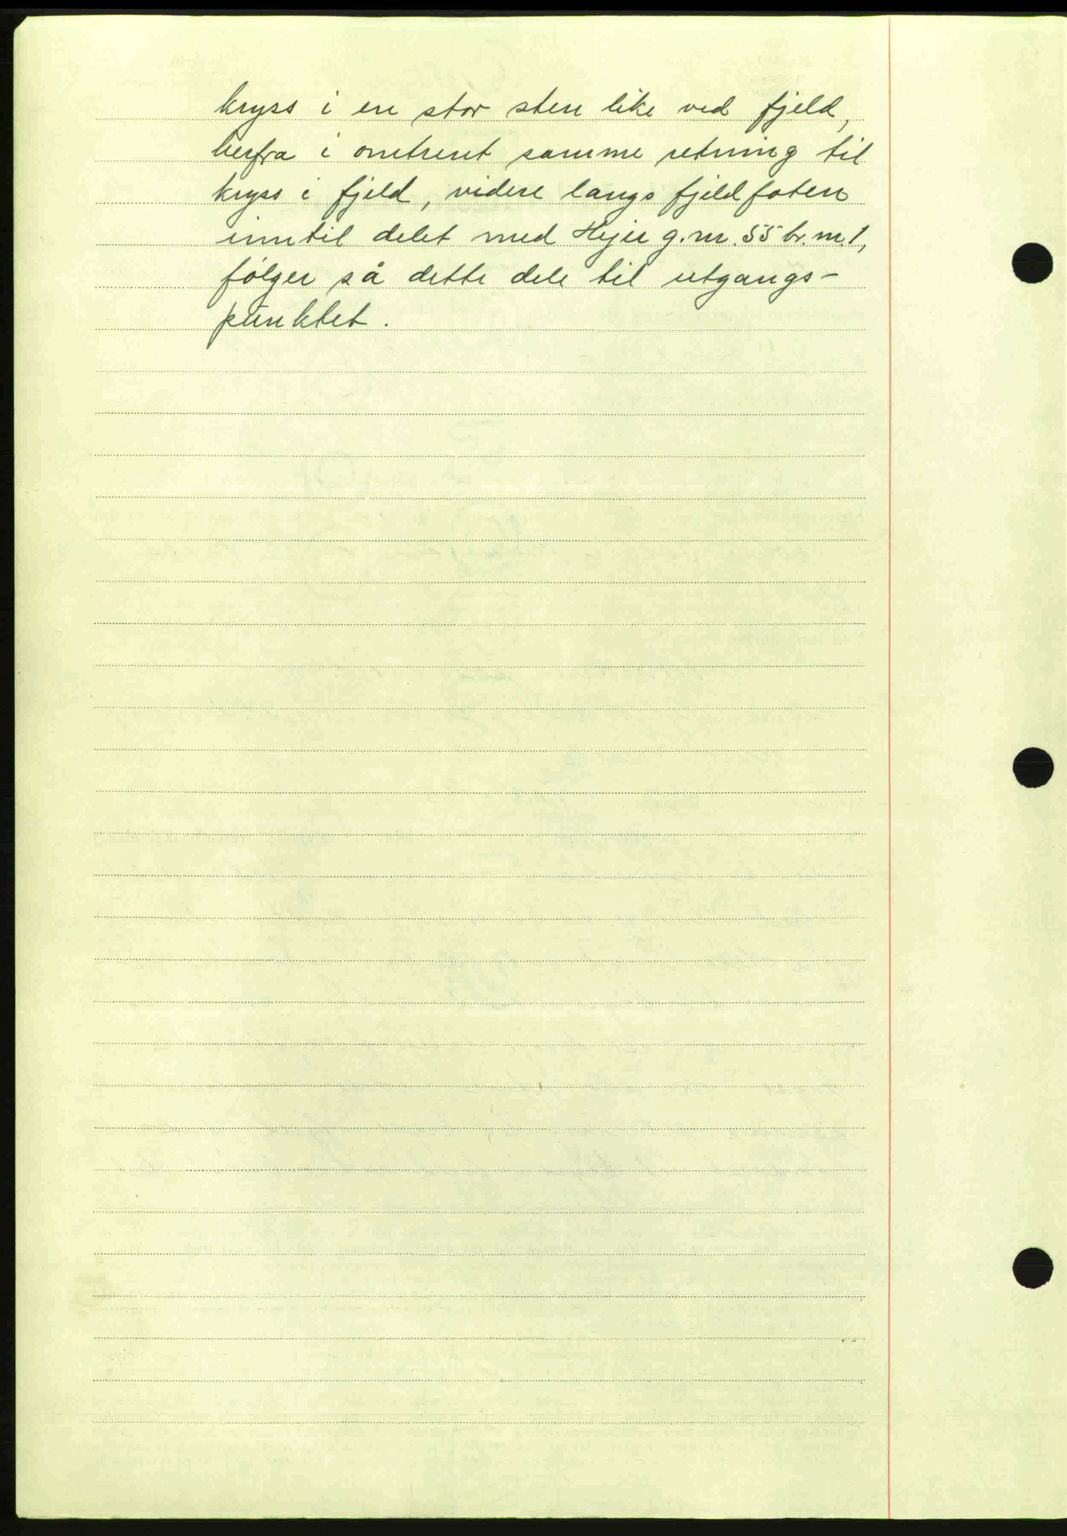 kryss i en stor sten like ved fjeld,
herfra i omtrent samme retning til
kryss i fjeld, videre langs fjeldfoten
inntil delet med g.nr. 55 br.nr. 1,
følger så dette dele til utgangs-
punktet.